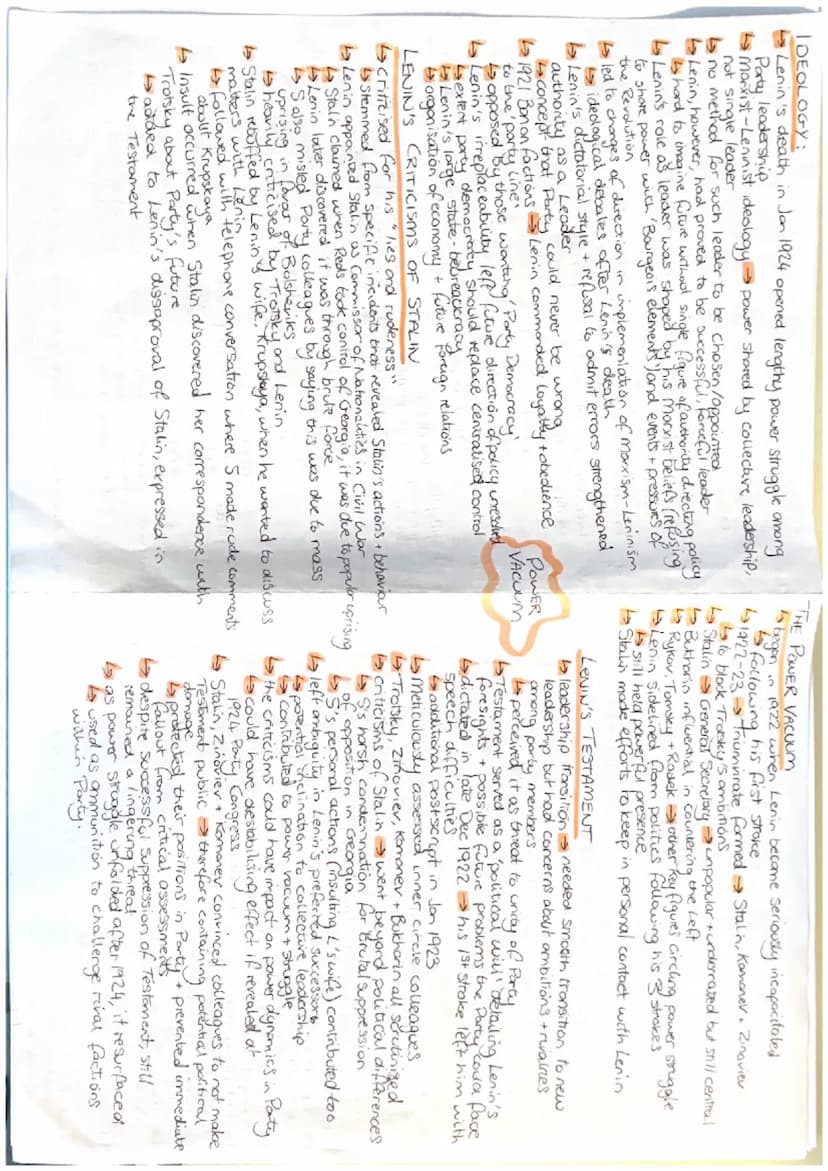 IDEOLOGY:
↳ Lenin's death in Jan 1924 opened lengthy power struggle among
Party leadership
↳ Marxist-Leninist ideology → power shared by collective leadership,
not single leader
↳ no method for such leader to be chosen/appointed
↳ Lenin, however, had proved to be successful, forceful leader
↳ hard to imagine future without single figure of authority directing policy
↳ Lenin's role as leader was shaped by his Marxist beliefs (refusing
to share power with 'Bourgeois elements') and events + pressures of
the Revolution
↳ led to changes of direction in implementation of Marxism-Leninism
↳ ideological debates after Lenin's death
↳ Lenin's dictatorial style + refusal to admit errors strengthened
authority as a Leader
↳ concept that Party could never be wrong
↳ 1921 Ban on Factions → Lenin commanded loyalty + obedience
to the 'party line'
↳ opposed by those wanting 'Party Democracy'
↳ Lenin's irreplaceability left future direction of policy unresolved
↳ extent party democracy should replace centralised control
↳ Lenin's large state-beaureacracy
↳ organisation of economy + future foreign relations
LENIN'S CRITICISMS OF STALIN
↳ criticised for his "lies and rudeness"
↳ stemmed from specific incidents that revealed Stalin's actions + behaviour
↳ Lenin appointed Stalin as Commissar of Nationalities in Civil War
↳ Stalin claimed when Reds took control of Georgia, it was due to popular uprising
↳ Lenin later discovered it was through brute force
↳ S also misled Party colleagues by saying this was due to mass
uprising in favour of Bolsheviks
↳ heavily criticised by Trotsky and Lenin
↳ Stalin rebuffed by Lenin's wife, Krupskaya, when he wanted to discuss
matters with Lenin
↳ followed with telephone conversation where S made rude comments
about Krupskaya
↳ Insult occurred when Stalin discovered her correspondence with
Trotsky about Party's future
↳ added to Lenin's dissaproval of Stalin, expressed in
the Testament
POWER
VACUUM
THE POWER VACUUM
↳ began in 1922 when Lenin became seriously incapacitated
↳ following his first stroke
↳ 1922-23 → Triumvirate formed → Stalin, Kamenev + Zinoviev
↳ to block Trotsky's ambitions
↳ Stalin → General Secretary → unpopular + underrated but still central
↳ Bukharin influential in countering the Left
↳ Rykov, Tomsky + Radek → other key figures circling power struggle
↳ Lenin sidelined from politics following his 3 strokes
↳ still held powerful presence
↳ Stalin made efforts to keep in personal contact with Lenin
LENIN'S TESTAMENT
↳ leadership transition → needed smooth transition to new
leadership but had concerns about ambitions + rivalries
among party members
↳ perceived it as threat to unity of Party
↳ Testament served as a 'political will' detailing Lenin's
foresights + possible future problems the Party could face
↳ dictated in late Dec 1922 → his 1st stroke left him with
speech difficulties
↳ additional postscript in Jan 1923
↳ Meticulously assessed inner circle colleagues
↳ Trotsky, Zinoviev, Kamenev + Bukharin all scrutinised
↳ criticisms of Stalin → went beyond political differences
↳ S's harsh condemnation for brutal suppression
of opposition in Georgia
↳ S's personal actions (insulting L's wife) contributed too
↳ left ambiguity in Lenin's preferred successors
↳ potential inclination to collective leadership
↳ contributed to power vacuum + struggle
↳ the criticisms could have impact on power dynamics in Party
↳ could have destabilising effect if revealed at
1924 Party Congress
↳ Stalin, Zinoviev + Kamenev convinced colleagues to not make
Testament public → therefore containing potential political
damage
↳ protected their positions in Party + prevented immediate
fallout from critical assessments
↳ despite successful suppression of Testament, still
remained a lingering threat
↳ as power struggle unfolded after 1924, it resurfaced
↳ used as ammunition to challenge rival factions
within Party.